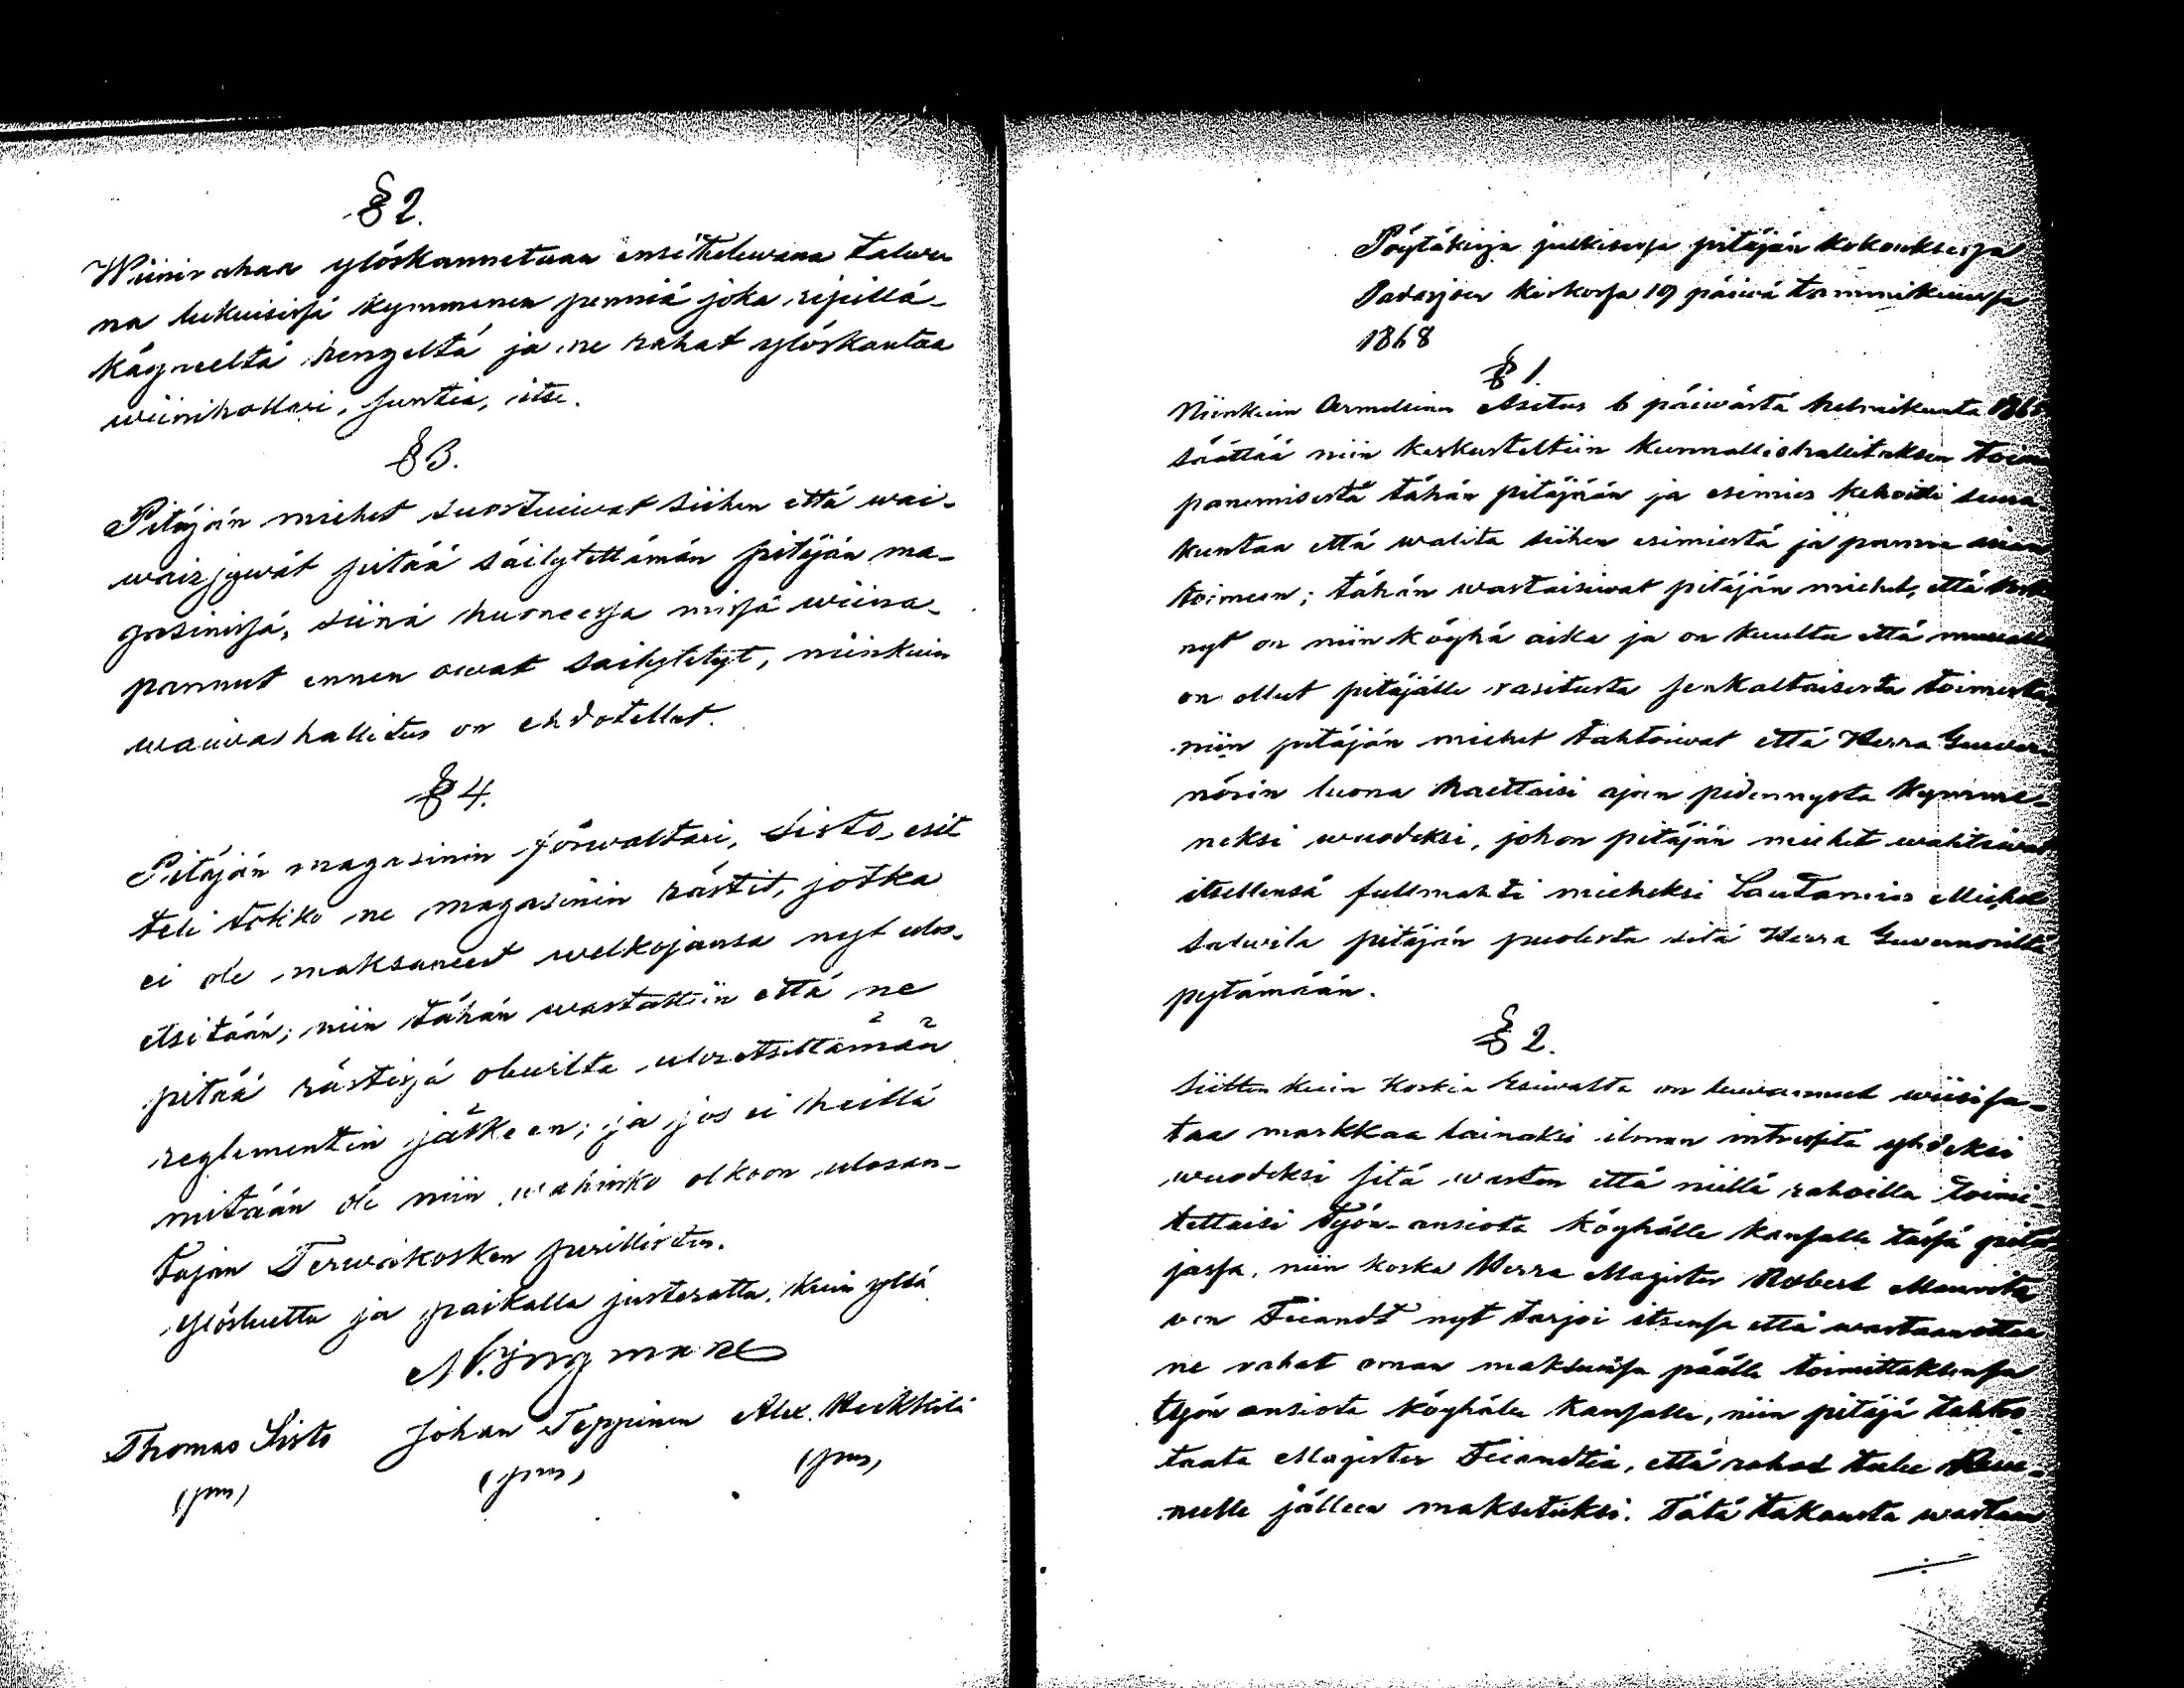 § 2.
Wiinirahaa ylöskannetaan ensitulewana talwe
na lukuisissä kymmenen penniä joka ripillä-
käyneeltä hengeltä ja ne rahat ylöskantaa
wiinihollari, suntia, itse.
§ 3.
Pitäjän miehet suostuiwat siihen että wai-
waisjywät pitää säilytettämän pitäjän ma-
gasinissä, siinä huoneessa missä wiina-
pannut ennen owat säilytetyt, niinkuin
waiwashallitus on ehdotellut.
§ 4.
Pitäjän magasinin förwaltari, Sisto, esit
teli tokko ne magasinin rästit, jotka
ei ole maksaneet welkojansa nyt ulos-
etsitään; niin tähän wastattiin että ne
pitää rästissä olewilta ulosetsittämän
reglementin jälkeen; ja jos ei heillä
mitään ole niin wahinko olkoon ulosan-
tajan Terwakosken perillistus.
Ylösluettu ja paikalla justerattu, kuin yllä
Thomas Sisto Johan Teppinen Alex. Heikkilä
(pm) (pm) (pm)
Pöytäkirja julkisessa pitäjän kokouksessa
Padasjoen kirkossa 19 päiwä tammikuussa
1868
§ 1.
Niinkuin Armollinen Asetus 6 päiwästä helmikuuta 1865
säättää niin keskusteltiin kunnallishallituksen toim
panemisestä tähän pitäjään ja esimies kehoitti seura
kuntaa että walita siihen esimiestä ja panna asian
toimeen; tähän wastaisiwat pitäjän miehet, että koska
nyt on niin köyhä aika ja on kuulta että muualla
on ollut pitäjälle rasitusta senkaltaisesta toimesta
niin pitäjän miehet tahtoiwat että Herra Guwer
nörin luona haettaisi ajan pidennystä kymme-
neksi wuodeksi, johon pitäjän miehet walitsiwat
itsellensä fullmahti mieheksi Lautamies Michel
Salwila pitäjän puolesta sitä Herra Guwernörilta
pytämään.
§ 2.
Siitten kuin Korkia Esiwalta on luwannut wiisisa-
taa markkaa lainaksi ilman intressitä yhdeksi
wuodeksi sitä warten että niillä rahoilla toimi-
tettaisi työn-ansiota köyhälle kansalle tässä pitä
jässä, niin koska Herra Magister Robert Maurits
von Fieandt nyt tarjoi itsensä että wastaanottaa
ne rahat oman maksunsa päälle toimittaklensa
työn ansiota köyhälle kansalle, niin pitäjä tahtoo
taata Magister Fieandtia, että rahat tulee Kruu-
nulle jälleen maksetuksi. Tätä takausta wastaan